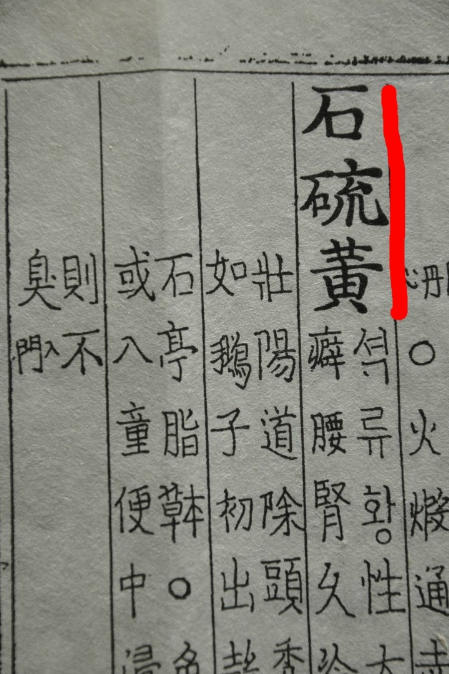 ○火煅通
石硫黃
셕류황性大
癖腰腎久冷
壯陽道除頭禿
如鵝子初出殼
石亭脂○色
或入童便中浸
則不
臭入門